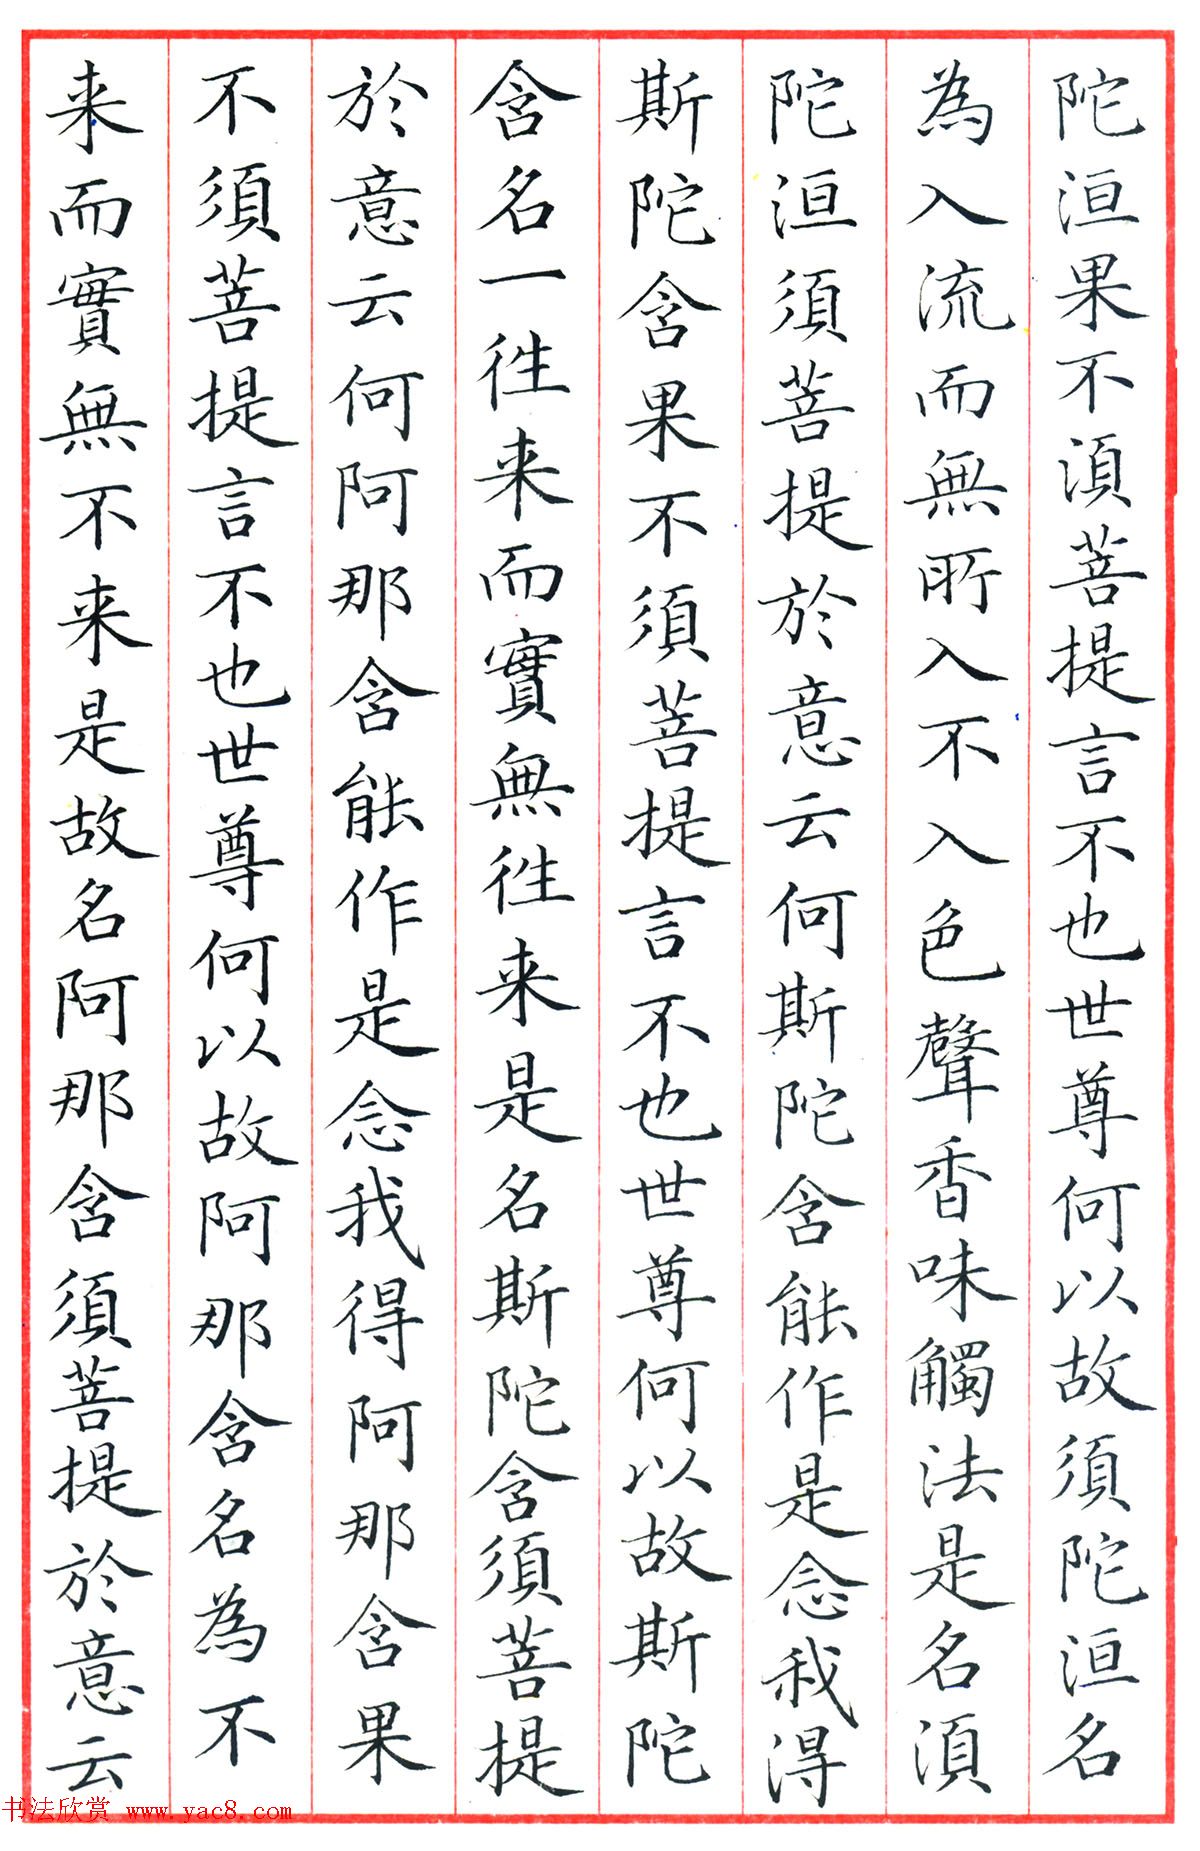 陀洹果不湏菩提言不也世尊何以故須陀洹名
為入流而無所入不入色聲香味觸法是名湏
陀洹須菩提於意云何斯陀含能作是念我得
斯陀含果不須菩提言不也世尊何以故斯陀
含名一徃来而實無徃来是名斯陀含須菩提
於意云何阿那含能作是念我得阿那含果
不須菩提言不也世尊何以故阿那含名為不
来而實無不来是故名阿那含須菩提於意云
书法欣赏 www.yac8.com